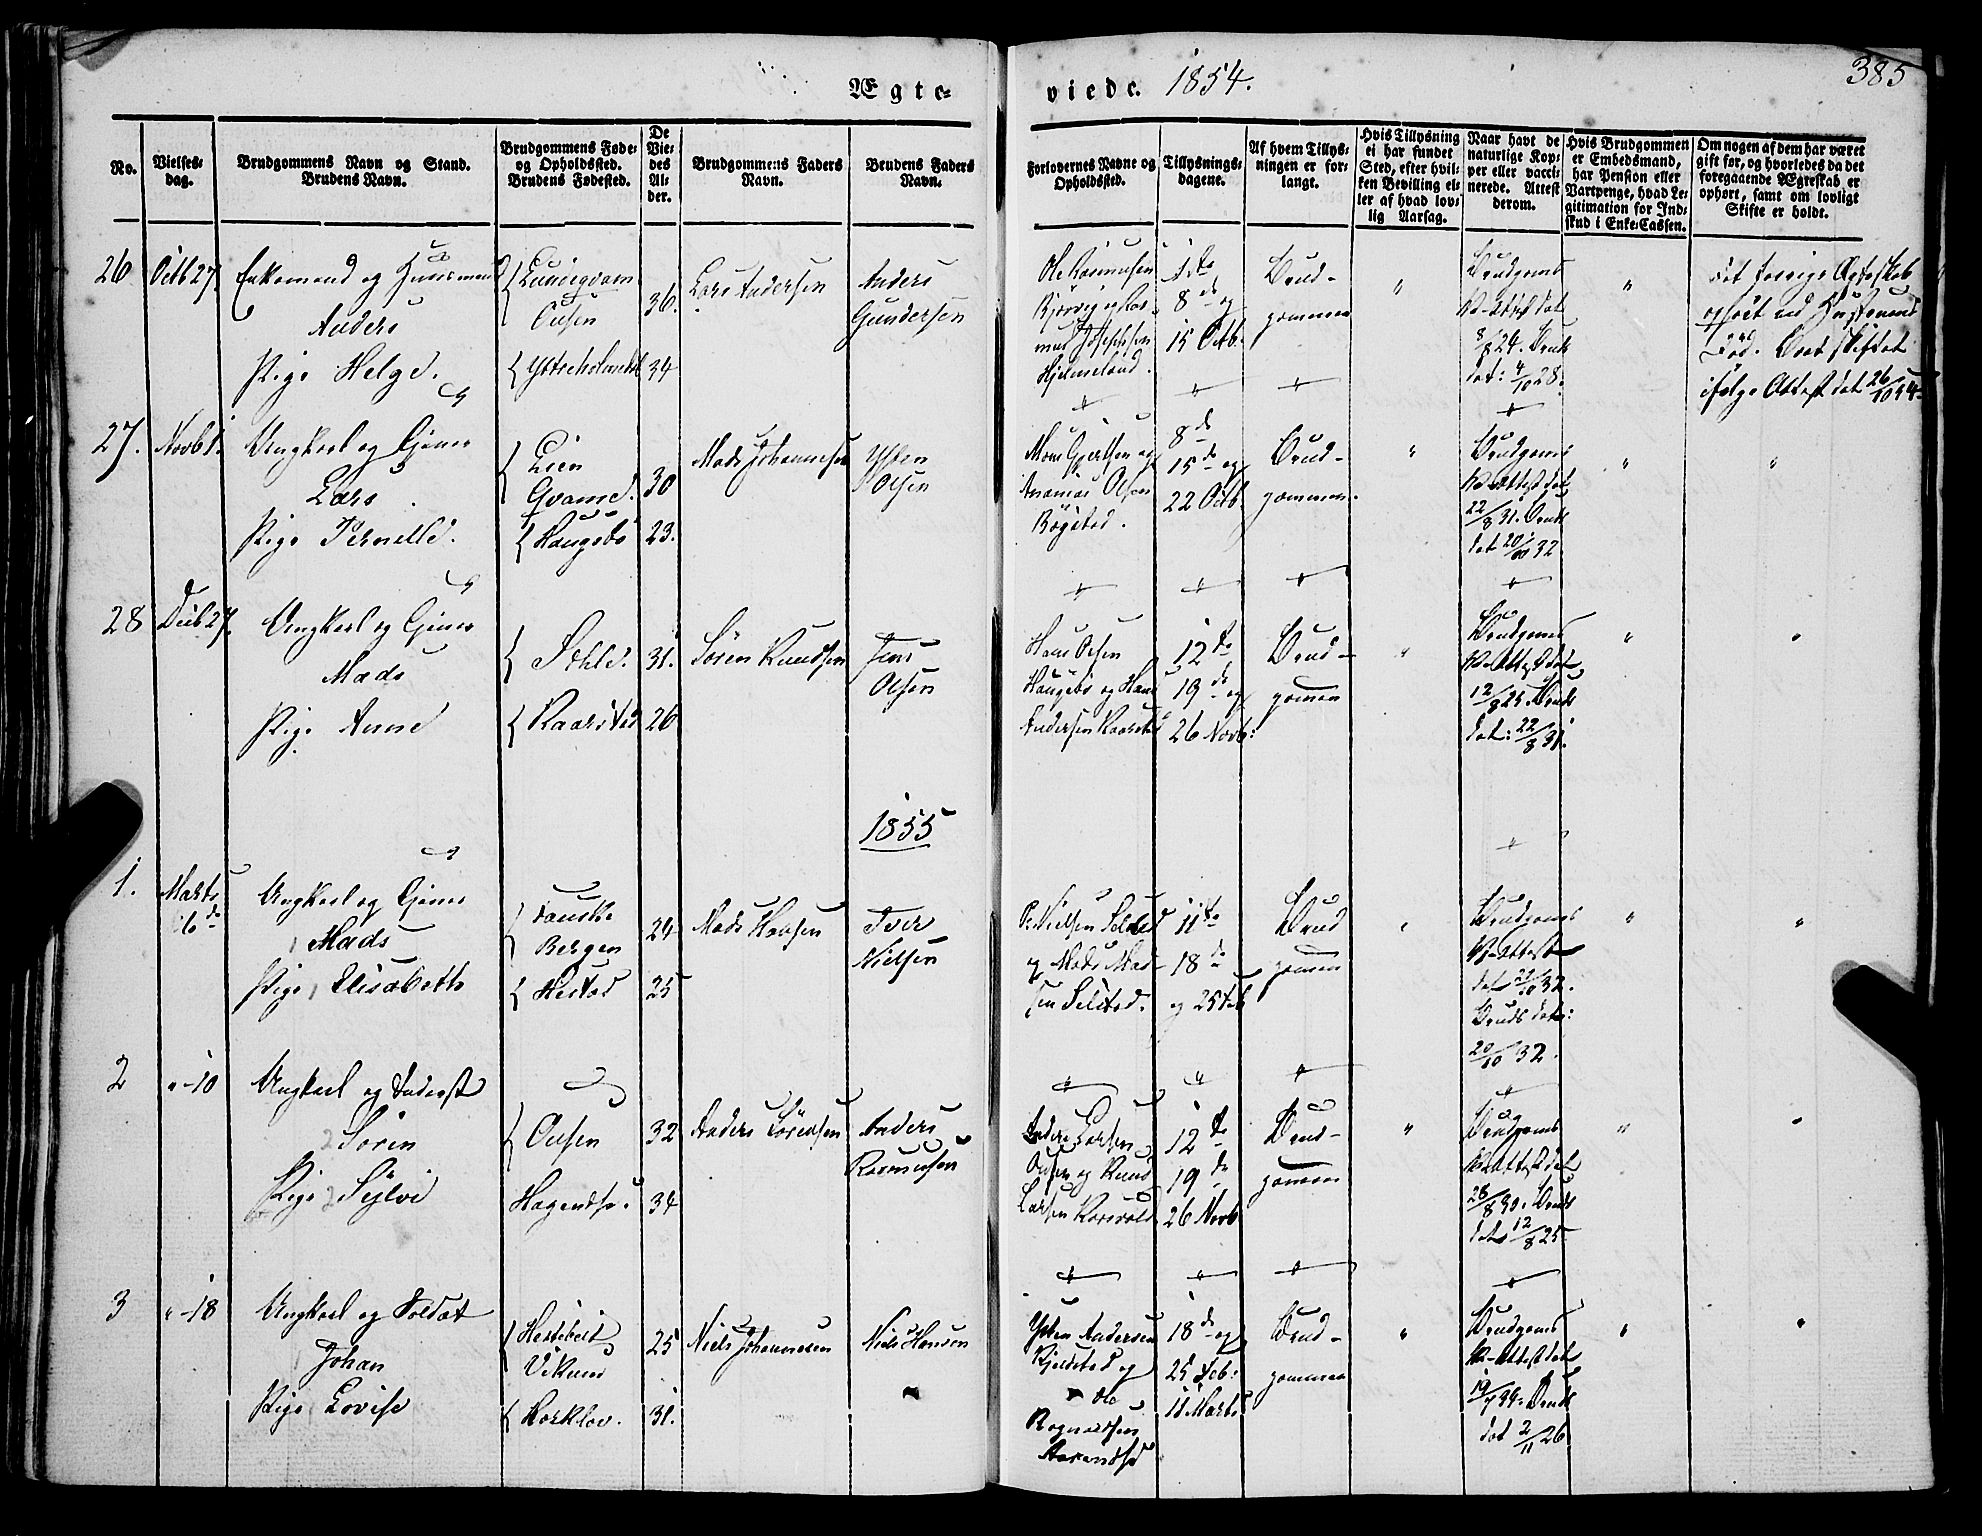 Ægte-
viede. 1854.
385
No.
Vielses-
dag.
Brudgommens Navn og Stand.
Brudens Navn.
Brudgommens Føde-
og Opholdssted.
Brudens Fødested.
De
Vie-
des
Al-
der.
Brudgommens Faders
Navn.
Brudens Faders
Navn.
Forlovernes Navne og
Opholdssted.
Tillysnings-
dagene.
Af hvem Tillys-
ningen er for-
langt.
Hvis Tillysning
ei har fundet
Sted, efter hvil-
ken Bevilling el-
ler af hvad lov-
lig Aarsag.
Naar havt de
naturlige Kop-
per eller vacci-
nerede. Attest
derom.
Hvis Brudgommen
er Embedsmand,
har Pension eller
Vartpenge, hvad Le-
gitimation for Ind-
skud i Enke-Cassen.
Om nogen af dem har været
gift før, og hvorledes da det
foregaaende Ægteskab er
ophørt, samt om lovligt
Skifte er holdt.
26
Octb 27.
Enkemand og Huusmand
Anders
Pige Helge.
Ousen
36.
34
Lars Andersen
Anders
Gundersen
Ole Rasmusen
Hjelmeland.
8de og
15 Octb.
Brud-
gommen
"
Brudgoms
8/8 24. Bruds
dat: 4/10 28.
"
Det forrige Ægteskab
ophørt ved Hustruens
Død. Boet skiftet
ifølge Attest dat 26/10 44.
27.
Novb 1.
Ungkarl og Gjæver
Lars
Pige Pernille.
Lien
Qvame.
Haugebø
30
23.
Mads Johannesen
Ysten
Olsen
Mons Gjertsen og
Ananias Olsen
Bøgstad.
8de
15de og
22 Octb.
Brud-
gommen.
"
Brudgoms
V-Attest dat
22/8 31. Bruds
dat 20/10 32
"
"
28
Decb 27.
Ungkarl og Gjæver
Mads
Pige Anne
Sæhle.
Kaarstad
31.
26
Søren Knudsen
Jens
Olsen
Hans Olsen
Haugebø og Hans
Andersen Kaarstad
12te
19de og
26 Novb:
Brud-
gommen
"
Brudgoms
V-Attest dat
12/8 25. Bruds
dat: 22/8 31.
"
"
1855
1.
Marts
6te
Ungkarl og Gjæver
Mads
Pige Elisabeth
Bergen
Hestad
24
25
Mads Hansen
Iver
Nielsen
P. Nielsen Selstad
og Mads Mad-
sen Selstad.
11te
18de
og 25 Feb
Brud
gommen
"
Brudgoms
V-Attest
dat 21/10 32.
Bruds dat:
20/10 32.
"
"
2
" -10
Ungkarl og Inderst
Søren
Pige Sylvi
Ousen
32
34
Anders Sørensen
Anders
Rasmusen
Anders Larsen
Ousen og Knud
Larsen Korsvold
12te
19de
26 Novb
Brud-
gommen
"
Brudgoms
V-Attest dat
28/8 30. Bruds
dat 12/8 25
"
"
3
" -18
Ungkarl og Soldat
Johan
Pige Lovise
Hestebeit
Vikum
Horklov.
25
31.
Niels Johannesen
Niels Hansen
Ysten Andersen
Kjelstad og
Ole
Ragnaldsen
18de og
25 Feb:
11 Marts
Brud-
gommen
"
Brudgoms
V-Attest dat
Bruds
dat 2/11 26
"
"